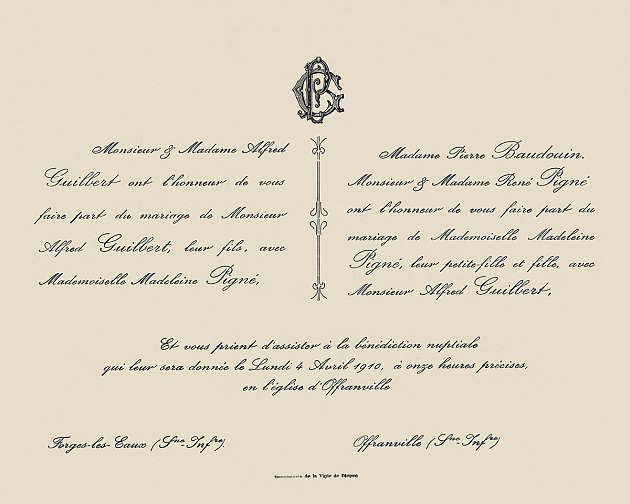 Monsieur & Madame Alfred
Guilbert ont l'honneur de vous
faire part du mariage de Monsieur
Alfred Guilbert, leur fils, avec
Mademoiselle Madeleine Pigné,
Madame Pierre Baudouin.
Monsieur & Madame René Pigné
ont l'honneur de vous faire part du
mariage de Mademoiselle Madeleine
Pigné, leur petite-fille et fille, avec
Monsieur Alfred Guilbert,
Et vous prient d'assister à la bénédiction nuptiale
qui leur sera donnée le Lundi 4 Avril 1910, à onze heures précises,
en l'église d'Offranville
Forges-les-Eaux (Sne-Infre)
Offranville (Sne-Infre)
de la Vigie de Dieppe